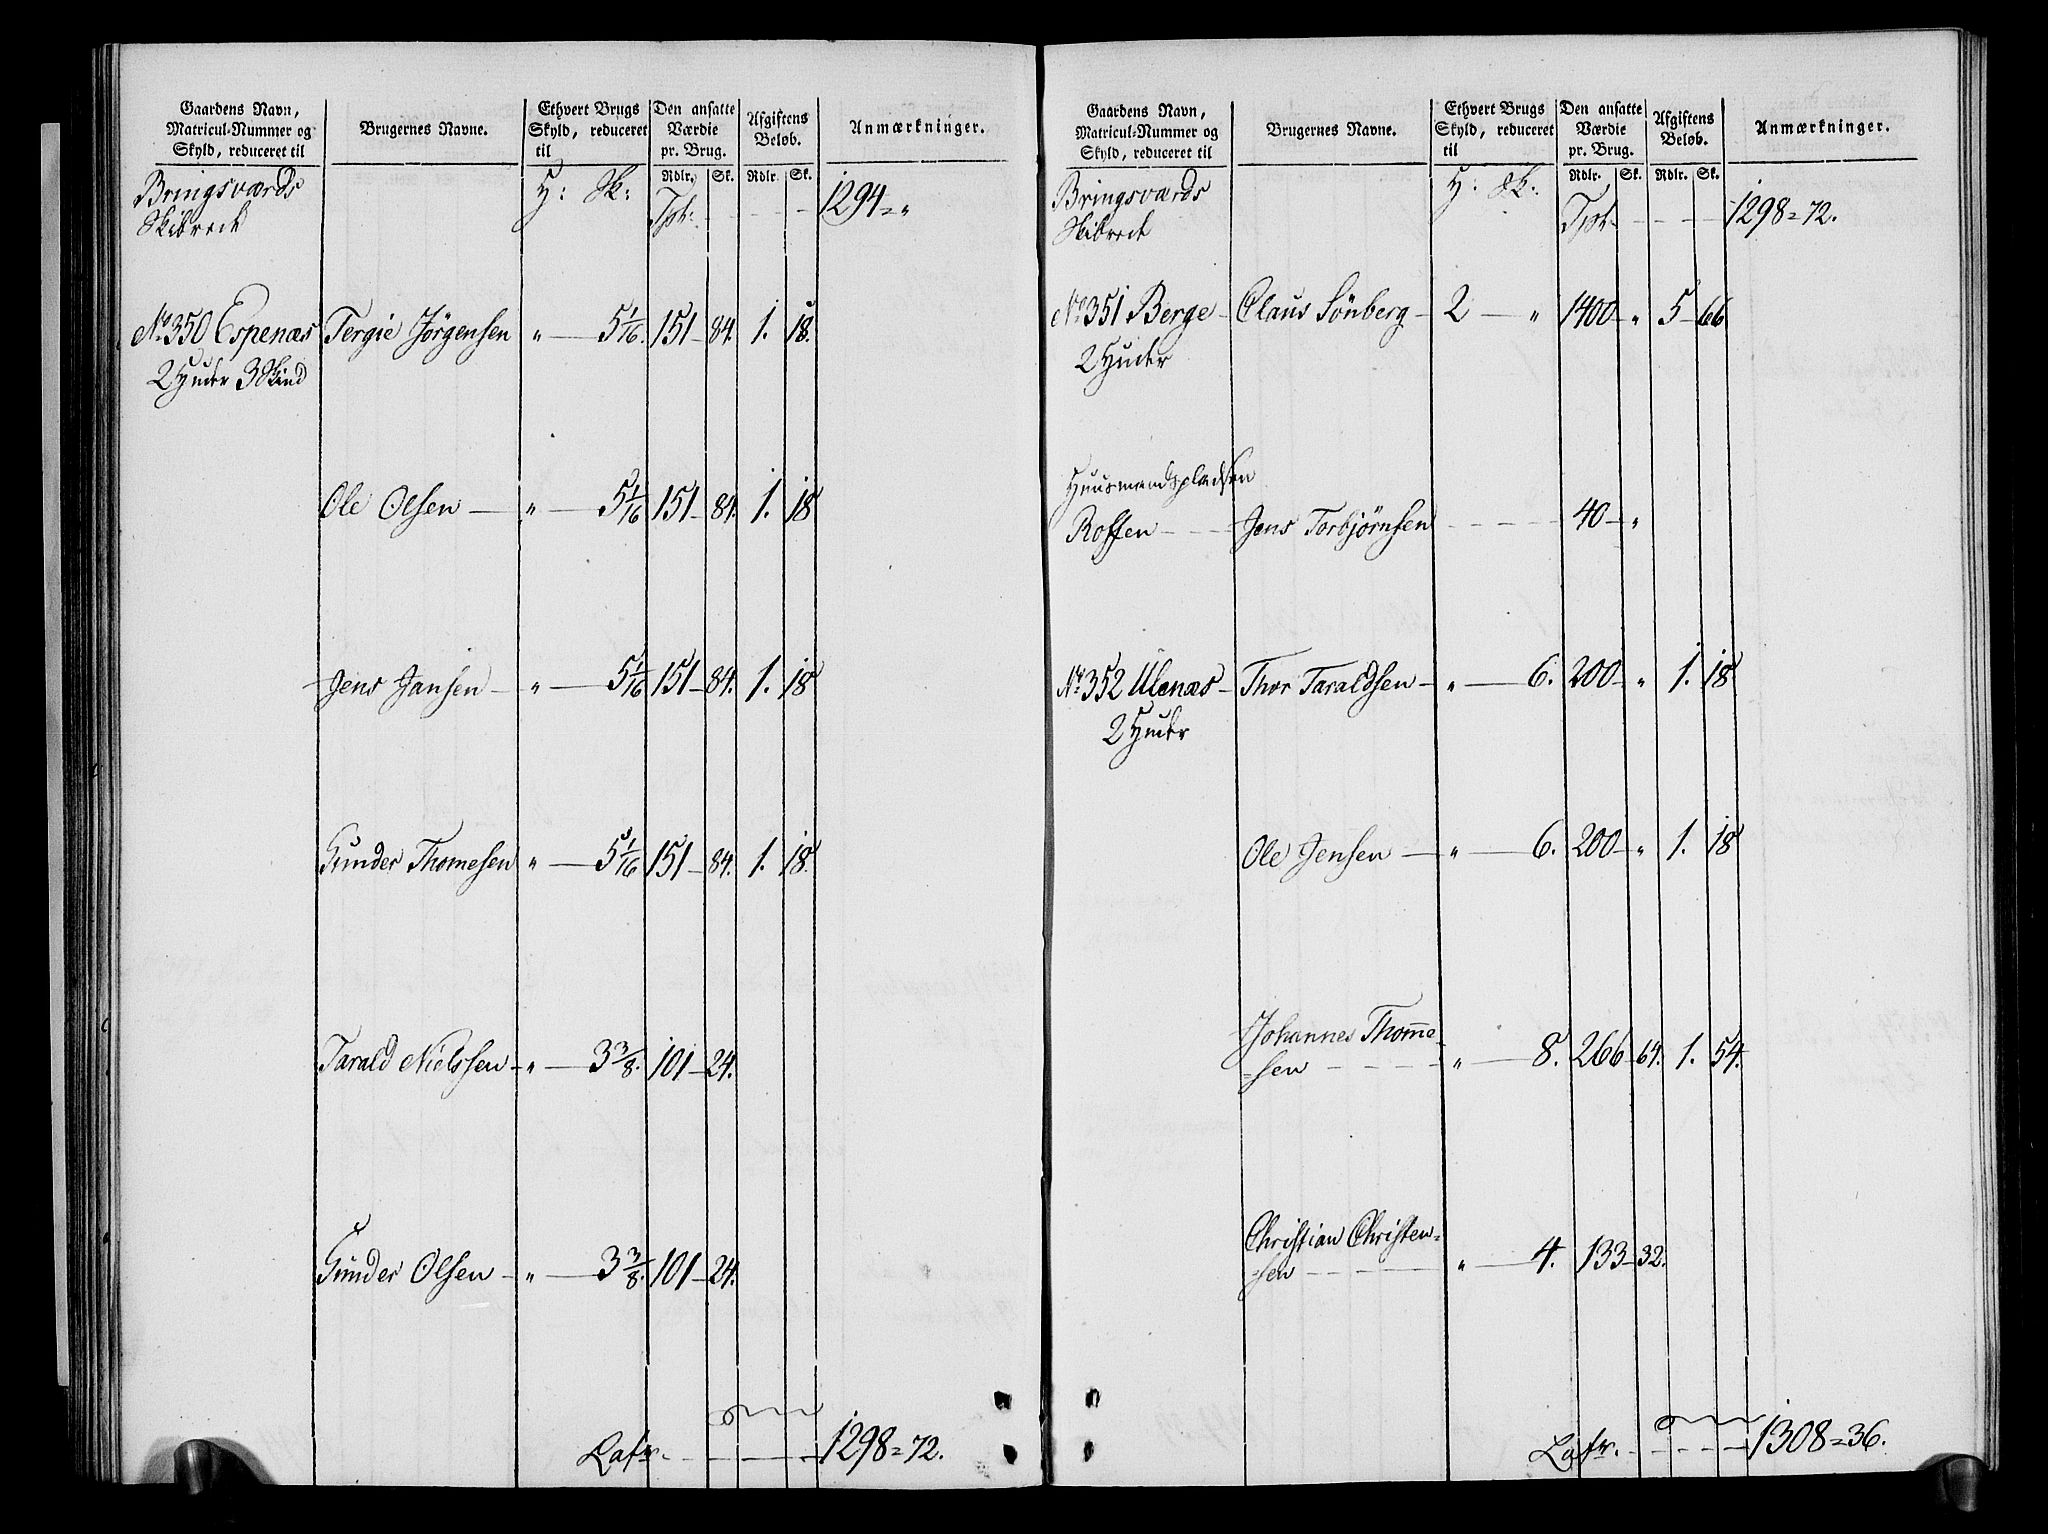 Gaardens Navn, Matricul-Nummer og Skyld, reduceret til | Brugernes Navne. | Ethvert Brugs Skyld, reduceret til | Den ansatte Værdie pr. Brug. | Afgiftens Beløb. | Anmærkninger.
Rdlr. Sk. Rdlr. Sk.
Bringsværds H: Sk: Tpt: 1294 = "
Skibrede
No 350 Espenæs Tergie Jörgensen " 5 1/16. 151 84. 1. 18.
2 Huder 3 Skind
Ole Olsen " 5 1/16 151 84. 1. 18
Jens Jansen " 5 1/16 151 84. 1. 18
Gunder Thomesen " 5 1/16 151 84. 1. 18.
Tarald Nielssen " 3 3/8. 101 24.
Gunder Olsen " 3 3/8. 101 24.
Latr. 1298 = 72.
Gaardens Navn, Matricul-Nummer og Skyld, reduceret til | Brugernes Navne. | Ethvert Brugs Skyld, reduceret til | Den ansatte Værdie pr. Brug. | Afgiftens Beløb. | Anmærkninger.
Rdlr. Sk. Rdlr. Sk.
Bringsværds H: Sk: Tpt: 1298 = 72.
Skibrede
No 351 Berge Claus Sönberg 2 " 1400 " 5 66
2 Huder
Huusmandspladsen
Roffen Jens Torbjørnsen 40 "
No 352 Ulenæs Thor Taraldsen " 6. 200 " 1. 18
2 Huder
Ole Jensen " 6. 200 " 1. 18
Johannes Thomme
=sen " 8. 266 64. 1. 54.
Christian Christen=
=sen " 4. 133 32.
Latr. 1308 = 36.